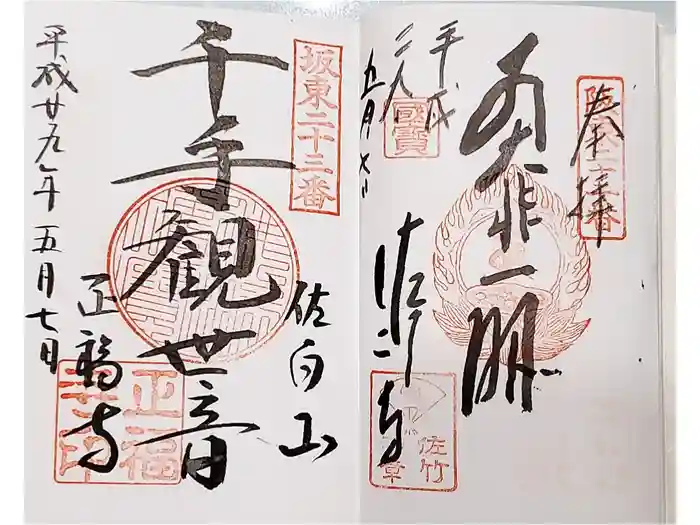 奉拝
大悲閣
平成
二九
五月七日
國寶
佐竹寺
佐竹
坂東二十三番
佐白山
千手觀世音
正福寺
正福
寺印
平成廿九年五月七日